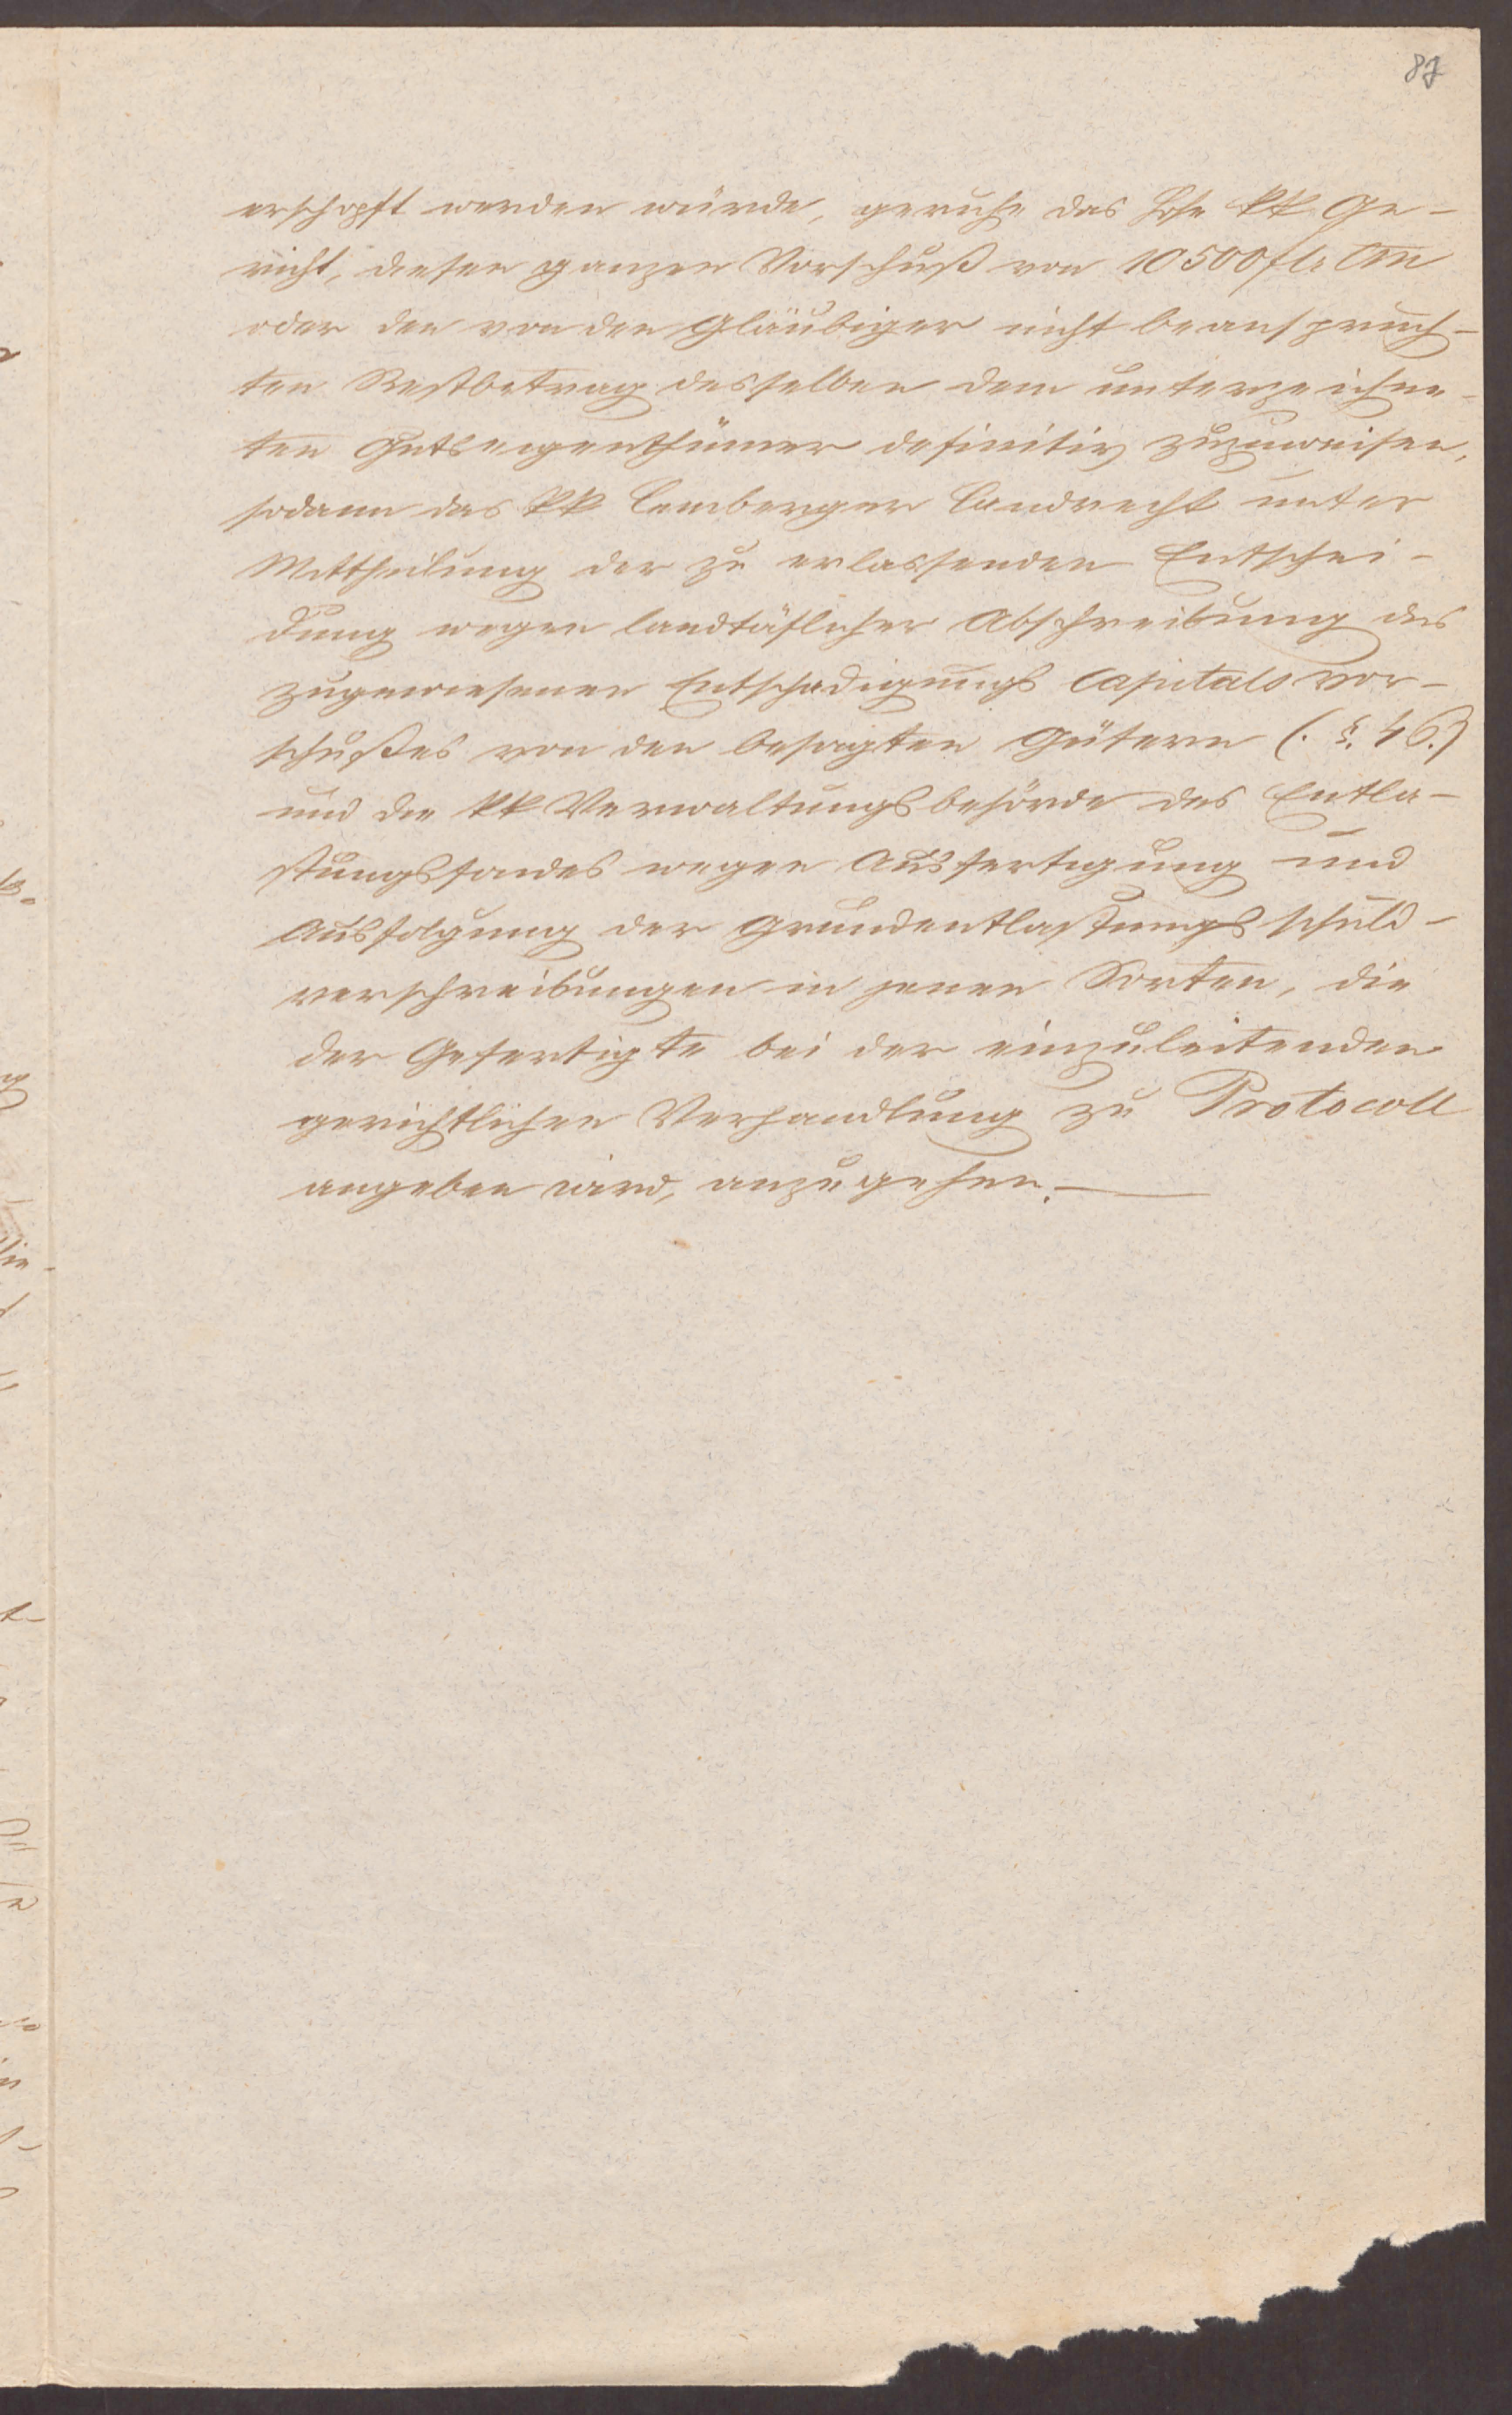 87
erschöpft werden würde, geruhe das hohe kk Ge-
richt, diesen ganzen Vorschuß von 10500 flr CM
oder den von den Gläubigern nicht beanspruch-
ten Restbetrag desselben dem unterzeichne-
ten Gutseigenthümer definitiv zuzuweisen,
sodann das kk Lemberger Landrecht unter
Mittheilung der zu erlassenden Entschei-
dung wegen landtäflicher Abschreibung des
zugewiesenen Entschädigungs Capitals vor-
schußes von den besagten Gütern (. §. 46.)
und die kk Verwaltungsbehörde des Entla-
stungsfondes wegen Ausfertigung und
Ausfolgung der Grundentlastungsschuld-
verschreibungen in jenen Sorten, die
der Gefertigte bei der einzuleitenden
gerichtlichen Verhandlung zu Protocoll
angeben wird, anzugehen.